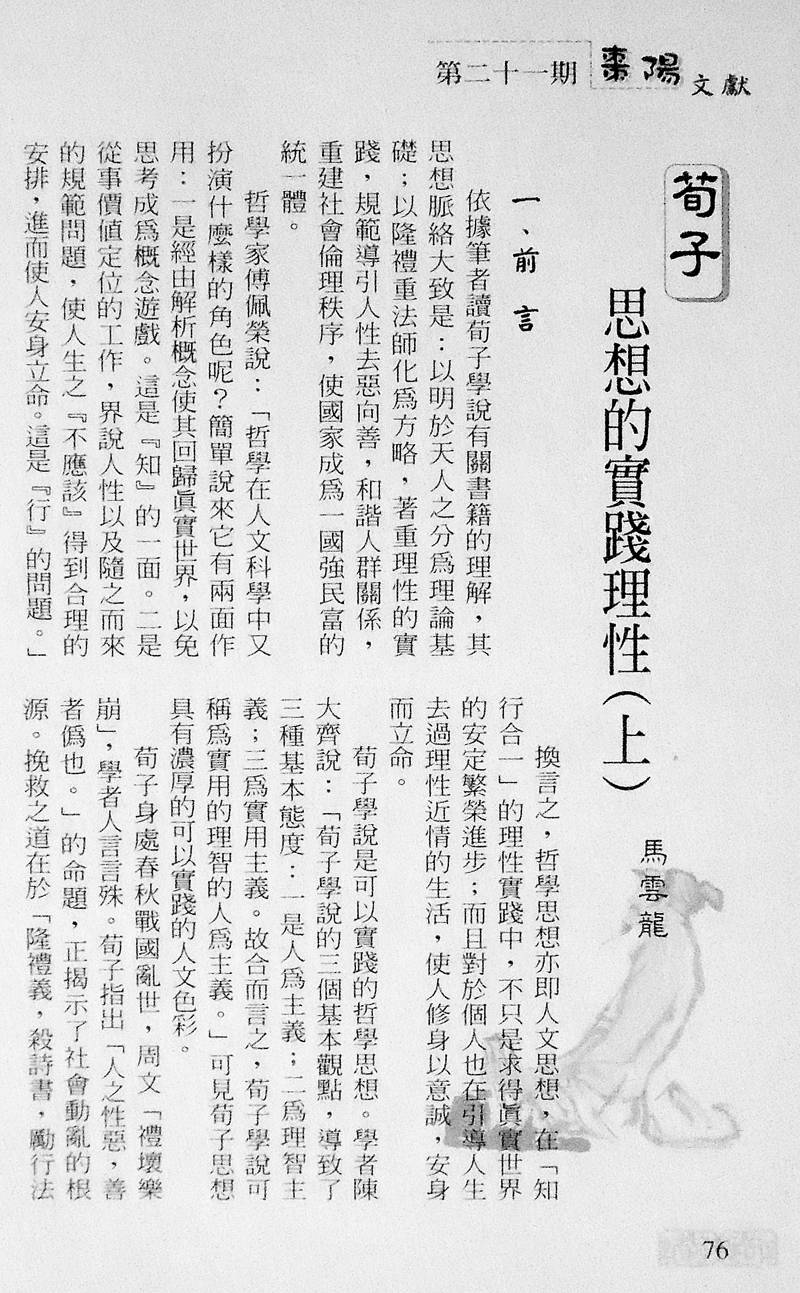 第二十一期
棗陽
文獻
荀子
思想的實踐理性（上）
馬雲龍
一、前言
依據筆者讀荀子學說有關書籍的理解，其
思想脈絡大致是：以明於天人之分爲理論基
礎；以隆禮重法師化爲方略，著重理性的實
踐，規範導引人性去惡向善，和諧人群關係，
重建社會倫理秩序，使國家成爲一國強民富的
統一體。
哲學家傅佩榮說：「哲學在人文科學中又
扮演什麼樣的角色呢？簡單說來它有兩面作
用：一是經由解析概念使其回歸眞實世界，以免
思考成爲概念遊戲。這是『知』的一面。二是
從事價值定位的工作，界說人性以及隨之而來
的規範問題，使人生之『不應該』得到合理的
安排，進而使人安身立命。這是『行』的問題。」
換言之，哲學思想亦即人文思想，在「知
行合一」的理性實踐中，不只是求得眞實世界
的安定繁榮進步；而且對於個人也在引導人生
去過理性近情的生活，使人修身以意誠，安身
而立命。
荀子學說是可以實踐的哲學思想。學者陳
大齊說：「荀子學說的三個基本觀點，導致了
三種基本態度：一是人爲主義；二爲理智主
義；三爲實用主義。故合而言之，荀子學說可
稱爲實用的理智的人爲主義。」可見荀子思想
具有濃厚的可以實踐的人文色彩。
荀子身處春秋戰國亂世，周文「禮壞樂
崩」，學者人言言殊。荀子指出「人之性惡，善
者僞也。」的命題，正揭示了社會動亂的根
源。挽救之道在於「隆禮義，殺詩書，勵行法
76